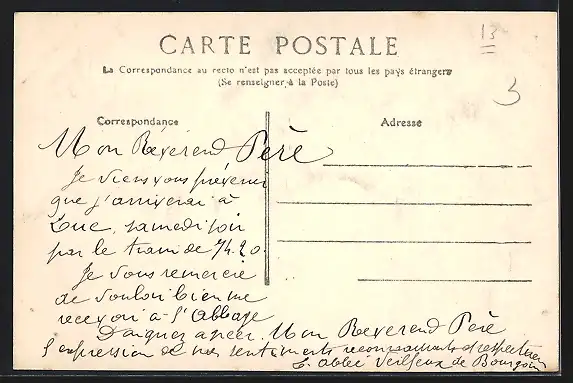 13
CARTE POSTALE
La Correspondance au recto n'est pas acceptée par tous les pays étrangers
(Se renseigner à la Poste)
3
Correspondance
Adresse
Mon Révérend Père
Je viens vous prévenir
que j'arriverai à
Luc, samedi soir
par le train de 7h.20.
Je vous remercie
de vouloir bien me
recevoir à l'Abbaye
Daignez agréer, Mon Reverend Père
l'expression de mes sentiments reconnaissants et respectueux
L'abbé de Bourgoin